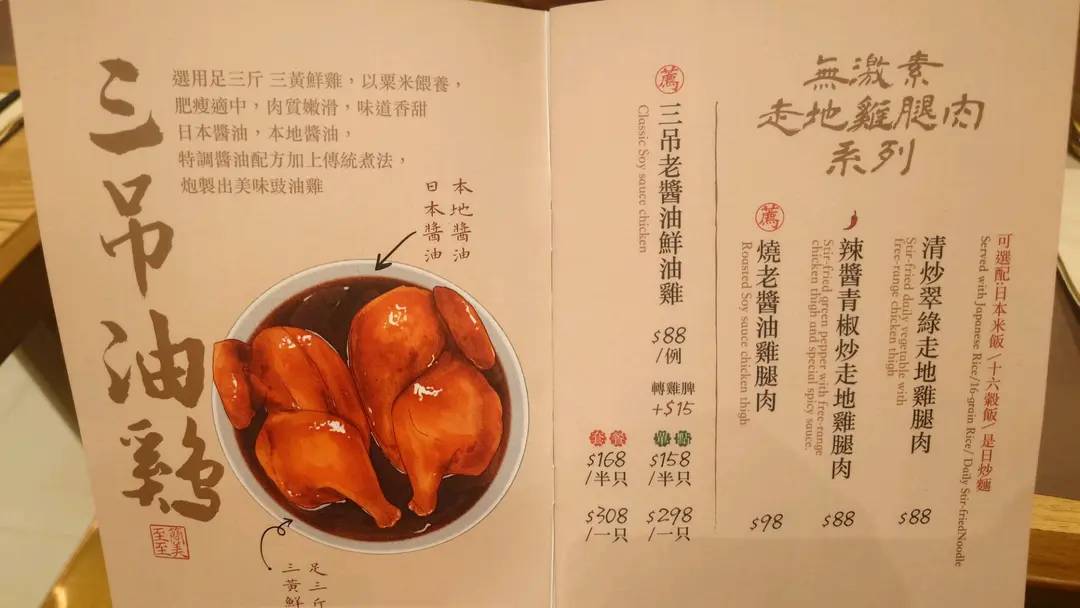 三吊油鷄
選用足三斤 三黃鮮雞，以粟米餵養，
肥瘦適中，肉質嫩滑，味道香甜
日本醬油，本地醬油，
特調醬油配方加上傳統煮法，
炮製出美味豉油雞
本地醬油
日本醬油
足三斤
三黃鮮
無激素
走地雞腿肉
系列
可選配:日本米飯 / 十六穀飯 / 是日炒麵
Served with Japanese Rice/16-grain Rice/ Daily Stir-friedNoodle
清炒翠綠走地雞腿肉
Stir-fried daily vegetable with
free-range chicken thigh
$88
辣醬青椒炒走地雞腿肉
Stir-fried green pepper with free-range
chicken thigh and special spicy sauce.
$88
薦
燒老醬油雞腿肉
Roasted Soy sauce chicken thigh
$98
薦
三吊老醬油鮮油雞
Classic Soy sauce chicken
$88
/例
轉雞脾
+$15
套餐
$168
/半只
$308
/一只
單點
$158
/半只
$298
/一只